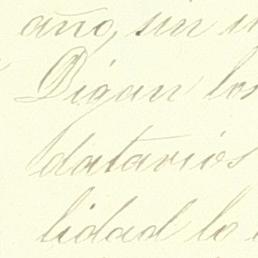 año, sin
Digan los
datarios
lidad lo